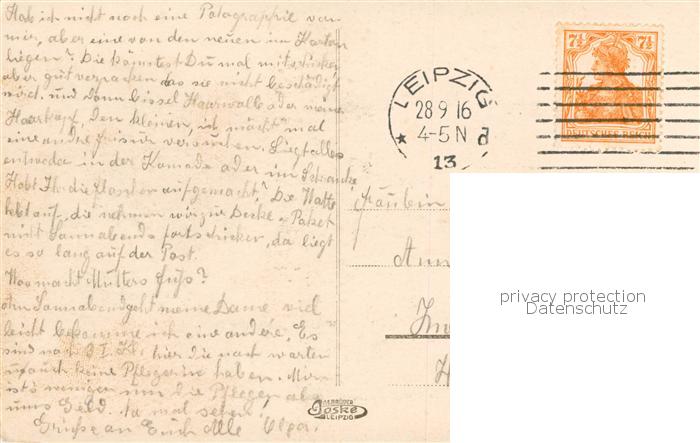 Hab ich nicht noch eine Potographie von
mir, aber eine von den neuen im Karton
liegen? Die könntest Du mal mitschicken
aber gut verpacken das sie nicht beschädigt
wird. und dann bissel Haarwolle oder meine
Haarkopf, den kleinen, ich möcht mal
eine andre frisur versuchen. Liegt alles
entweda in der Komode oder im Schranke
Habt Ihr die Flaschen aufgemacht? Die Watte
hebt auf, die nehmen wir zur Decke. Paket
nicht Sonnabends fortschicken, da liegt
es so lang auf der Post.
Was macht Mutters Fuß?
Am Sonnabend geht meine Dame viel
leicht bekomme ich eine andere. Es
sind noch 3 I. Kl. hier die noch warten
u. auch keine Pflegerin haben. Mir
ist's weniger um die Pflegen als
ums Geld. na mal sehen!
Grüße an Euch Alle Olga.
GEBRÜDER
Joske
LEIPZIG
LEIPZIG
28 9 16
4-5 N
13
d
7½ 7½
DEUTSCHES REICH
Fräulein
privacy protection
Datenschutz